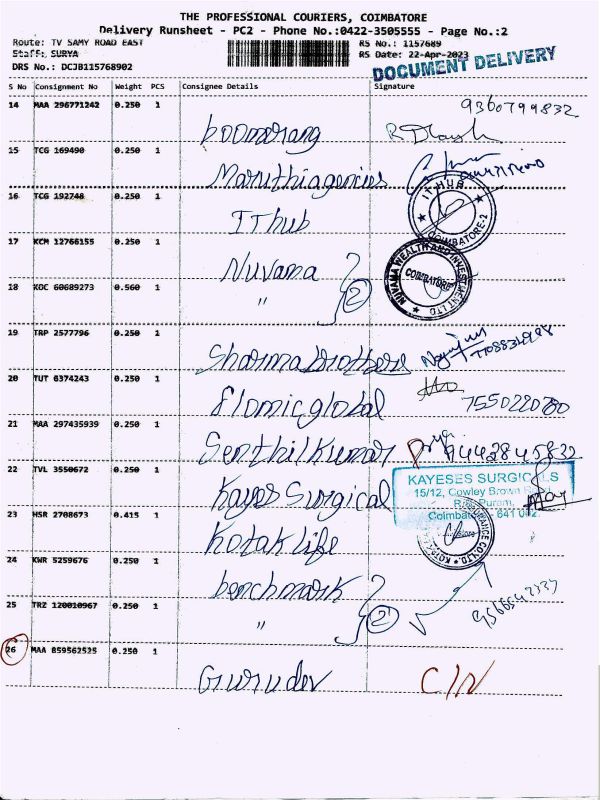 THE PROFESSIONAL COURIERS, COIMBATORE
Delivery Runsheet - PC2 - Phone No.:0422-3505555 - Page No.:2
Route: TV SAMY ROAD EAST
RS No.: 1157689
Staff: SURYA
RS Date: 22-Apr-2023
DRS No.: DCJB115768902
DOCUMENT DELIVERY
S No Consignment No Weight PCS Consignee Details Signature
14 MAA 296771242 0.250 1
boomerang
9360799832
15 TCG 169490 0.250 1
Maruthiagencies
16 TCG 192748 0.250 1
IThub
IT HUB COIMBATORE-2
17 KCM 12766155 0.250 1
Nuvama
NUVAMA WEALTH AND INVESTMENT LTD COIMBATORE
18 KOC 60689273 0.560 1
" 2
19 TRP 2577796 0.250 1
Sharmabrothers
20 TUT 6374243 0.250 1
Flomicglobal
7550220780
21 MAA 297435939 0.250 1
Senthilkumar
9442845832
22 TVL 3550672 0.250 1
Kayes Surgical
KAYESES SURGICALS
15/12, Cowley Brown
R.S. Puram,
Coimbatore - 641 002.
23 HSR 2708673 0.415 1
Kotak life
24 KWR 5259676 0.250 1
benchmark
25 TRZ 120010967 0.250 1
" 2
26 MAA 859562525 0.250 1
Gurudev
C/N